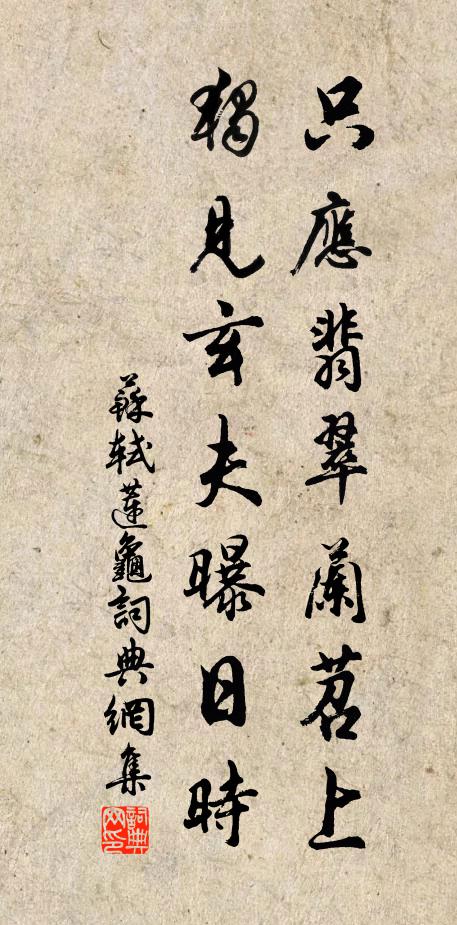 只應翡翠蘭苕上
獨見玄夫曝日時
蘇軾蓮龜詞典網集
詞典网印